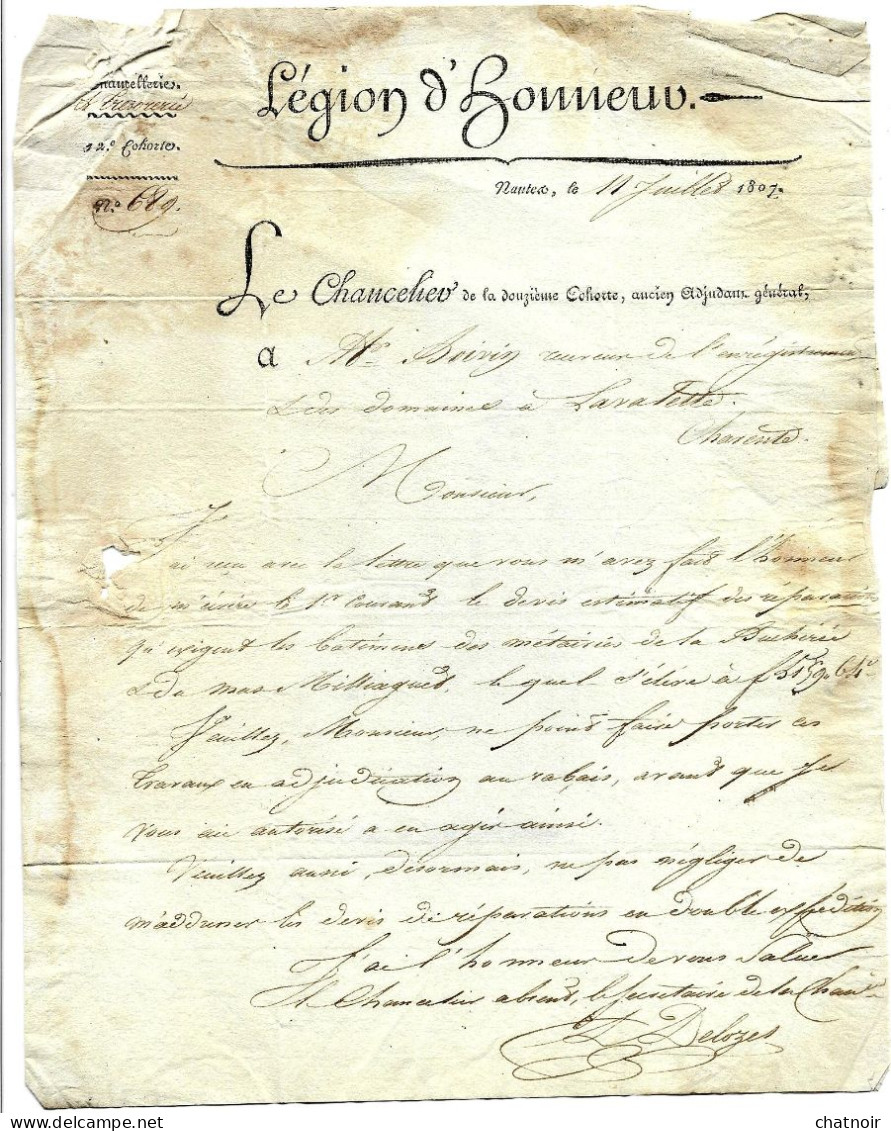 Chancellerie.
et trésorerie
12.e Cohorte.
N.o 689.
Légion d'Honneur.
Nantes, le 11 Juillet 1807.
Le Chancelier de la douzième Cohorte, ancien Adjudant général,
A Mr. Boivin receveur de l'enrégistrement
& des domaines à Lavalette.
Charente.
Monsieur,
J'ai reçu avec la lettre que vous m'avez fait l'honneur
de m'écrire le 1er courant le devis estimatif des réparations
qu'exigent les batimens des métairies de la
& du mas Milliaguet, le quel s'élève à
Veuillez, Monsieur, ne point faire porter ces
travaux en adjudication au rabais, avant que je
vous aie autorisé a en agir ainsi.
Veuillez aussi, désormais, ne pas négliger de
m'adresser les devis de réparations en double expédition
J'ai l'honneur de vous saluer
Le Chancelier absent, le Secrétaire de la Chanc.
Delozes
chatnoir